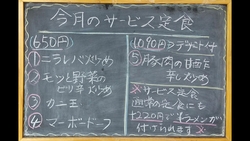 今月のサービス定食
(650円)
①ニラレバ炒め
②モツと野菜の
ピリ辛炒め
③カニ玉
④マーボードーフ
⑤月豚肉の甘酢
辛し炒め
※サービス定食
通常の定食にも
+220円で半ラーメンが
付けられます※